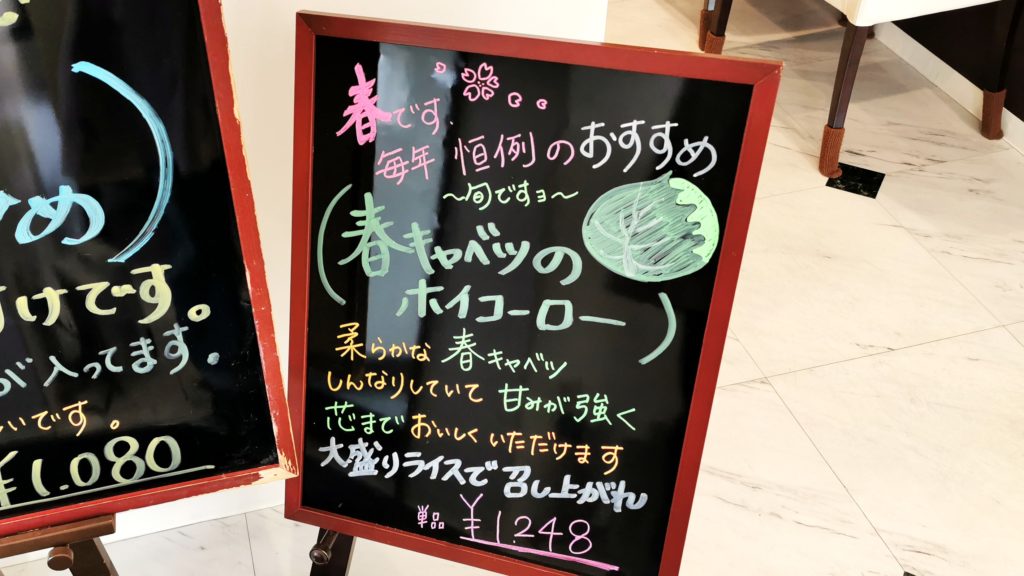 め
けです。
が入ってます。
いです。
¥1.080
春です.
毎年 恒例のおすすめ
〜旬ですョ〜
春キャベツの
ホイコーロー
柔らかな 春キャベツ
しんなりしていて 甘みが強く
芯まで おいしくいただけます
大盛りライスで 召し上がれ
単品 ¥1.248